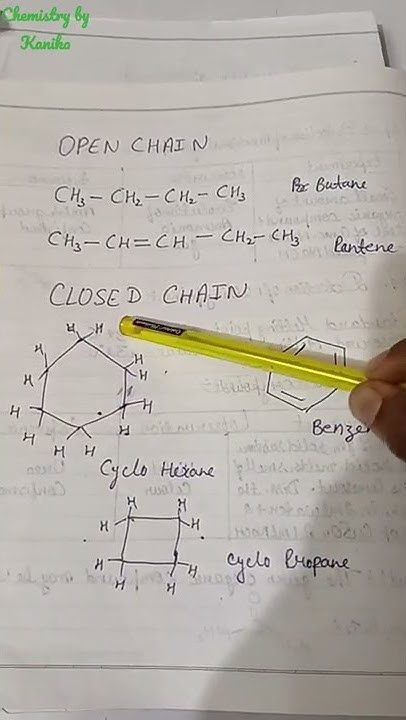 Chemistry by
Kanika
OPEN CHAIN
CH₃ – CH₂ – CH₂ – CH₃ Butane
CH₃ – CH = CH – CH₂ – CH₃ Pantene
CLOSED CHAIN
H H
H H
H H
H H
H H
H H
Benzen
Cyclo Hexane
H H
H H
Cyclo Propane
H H
H H